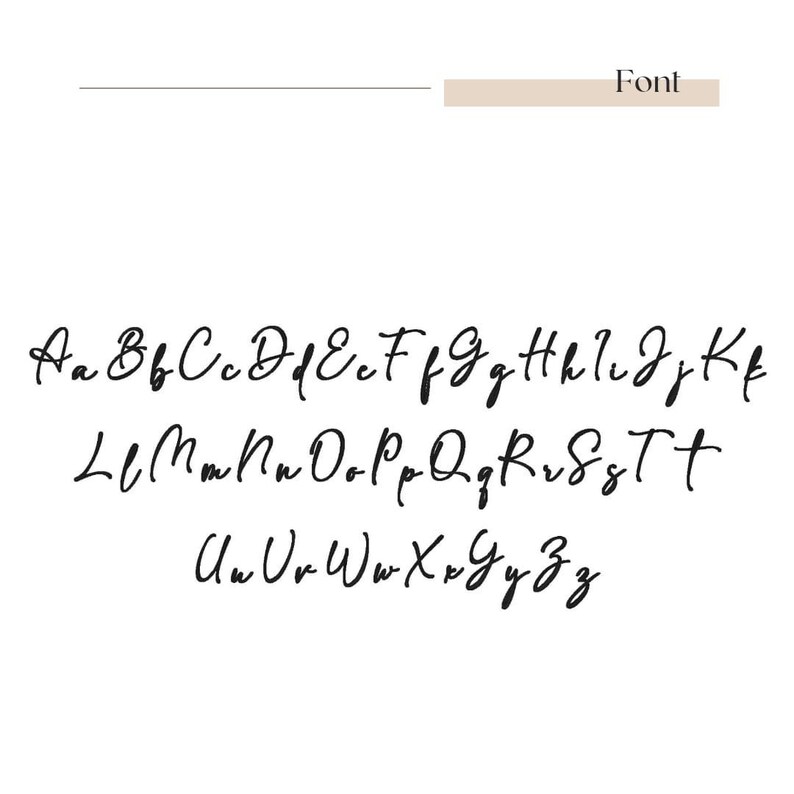 Font
AaBbCcDdEeFfGgHhIiJjKk
LlMmNnOoPpQqRrSsTt
UuVvWwXxYyZz